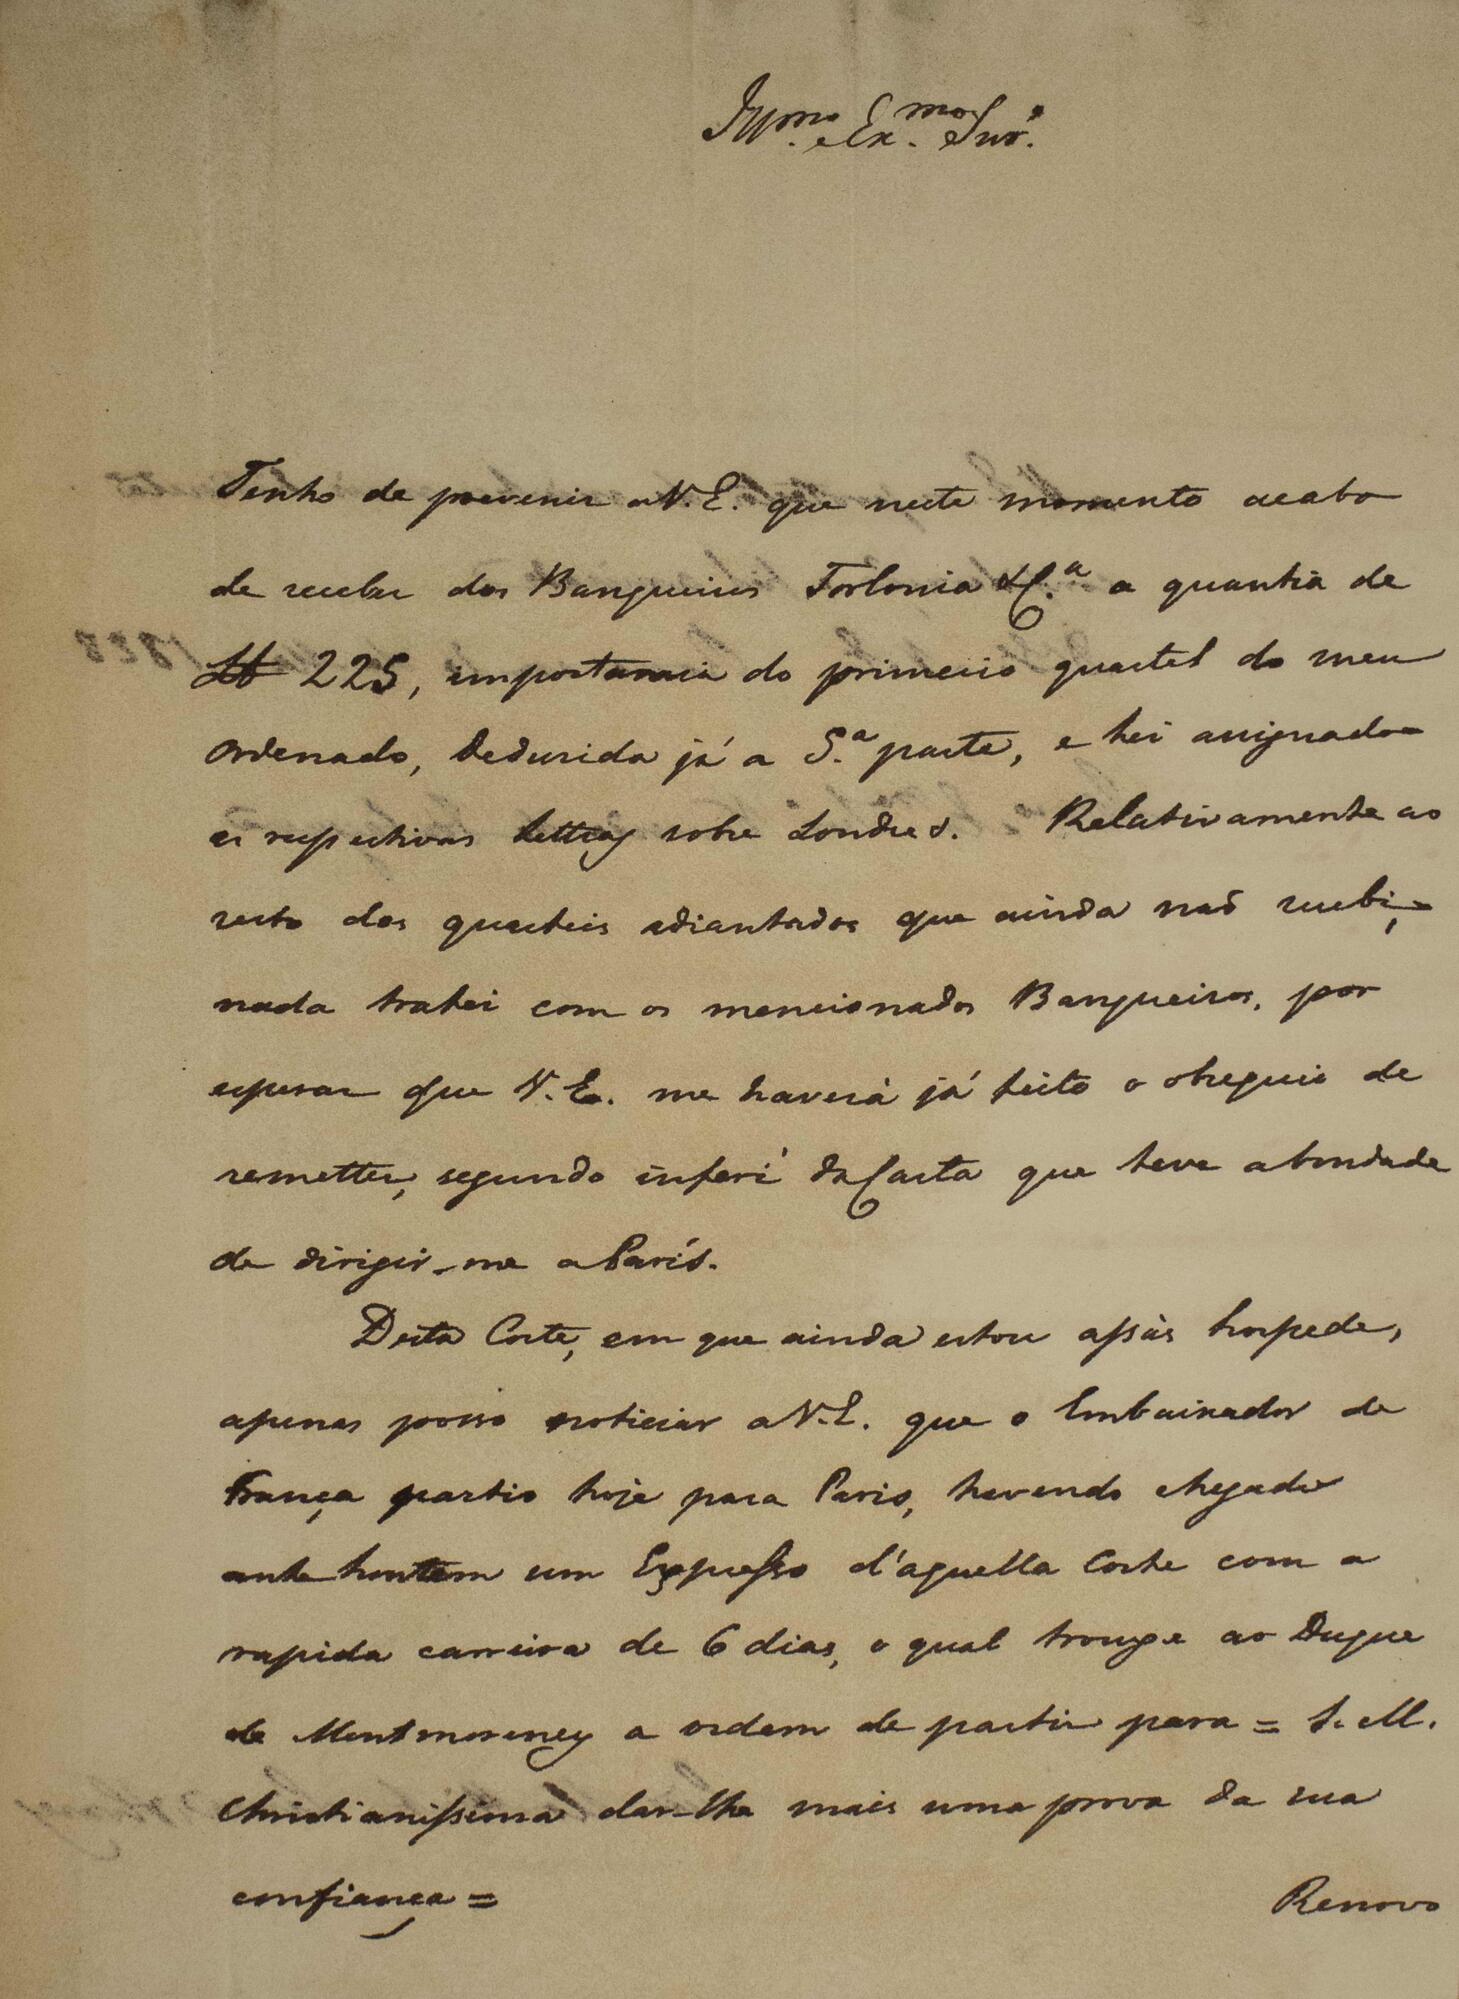 Illmo. e Exmo. Snr.
Tenho de prevenir a V.E. que neste momento acabo
de receber dos Banqueiros Torlonia & C.ª a quantia de
225, importancia do primeiro quartel do meu
ordenado, deduzida já a 5.ª parte, e hei assignado
as respectivas lettras sobre Londres. Relativamente ao
resto dos quarteis adiantados que ainda naõ recebi,
nada tratei com os mencionados Banqueiros, por
esperar que V.E. me haverá já feito o obsequio de
remetter, segundo inferi da Carta que teve a bondade
de dirigir-me a Paris.
Desta Corte, em que ainda estou assás hospede,
apenas posso noticiar a V.E. que o Embaixador de
França partio hoje para Paris, havendo chegado
ante hontem um Expresso d'aquella Corte com a
rapida carreira de 6 dias, o qual trouxe ao Duque
de Montmorency a ordem de partir para = S. M.
Christianissima dar-lhe mais uma prova da sua
confiança =
Renovo
1828